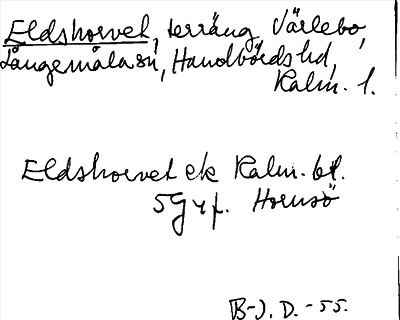 Eldshorvet, terräng, Värlebo,
Långemåla sn, Handbörds hd,
Kalm. l.
Eldshorvet ek Kalm. bl.
5G y f. Hornsö
B-J. D. -55.